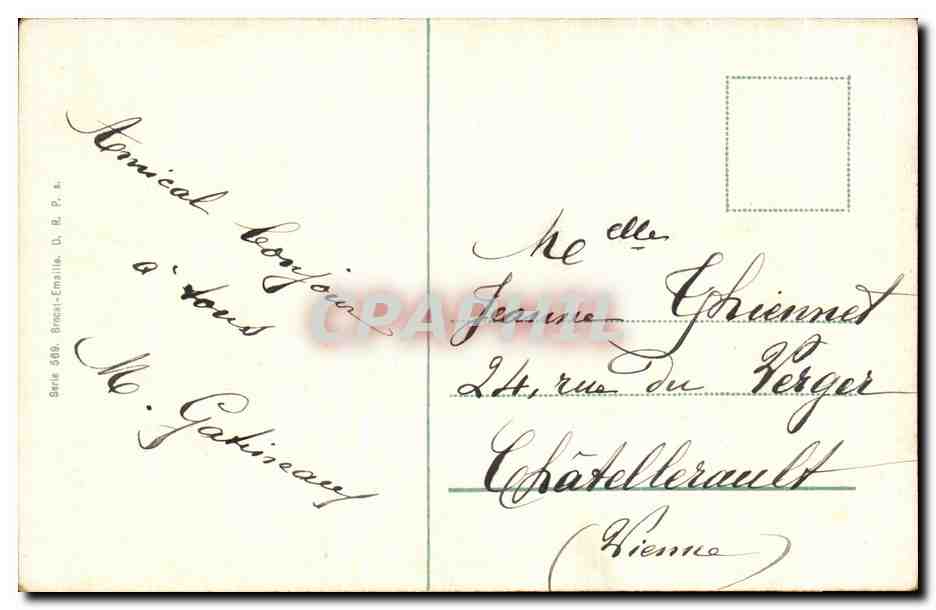 Amical bonjour
à tous
M. Gatineau
Serie 569. Brocat-Emaille. D. R. P. a.
Melle
Jeanne Thiennet
24, rue du Verger
Châtellerault
(Vienne)
CPARPHIL